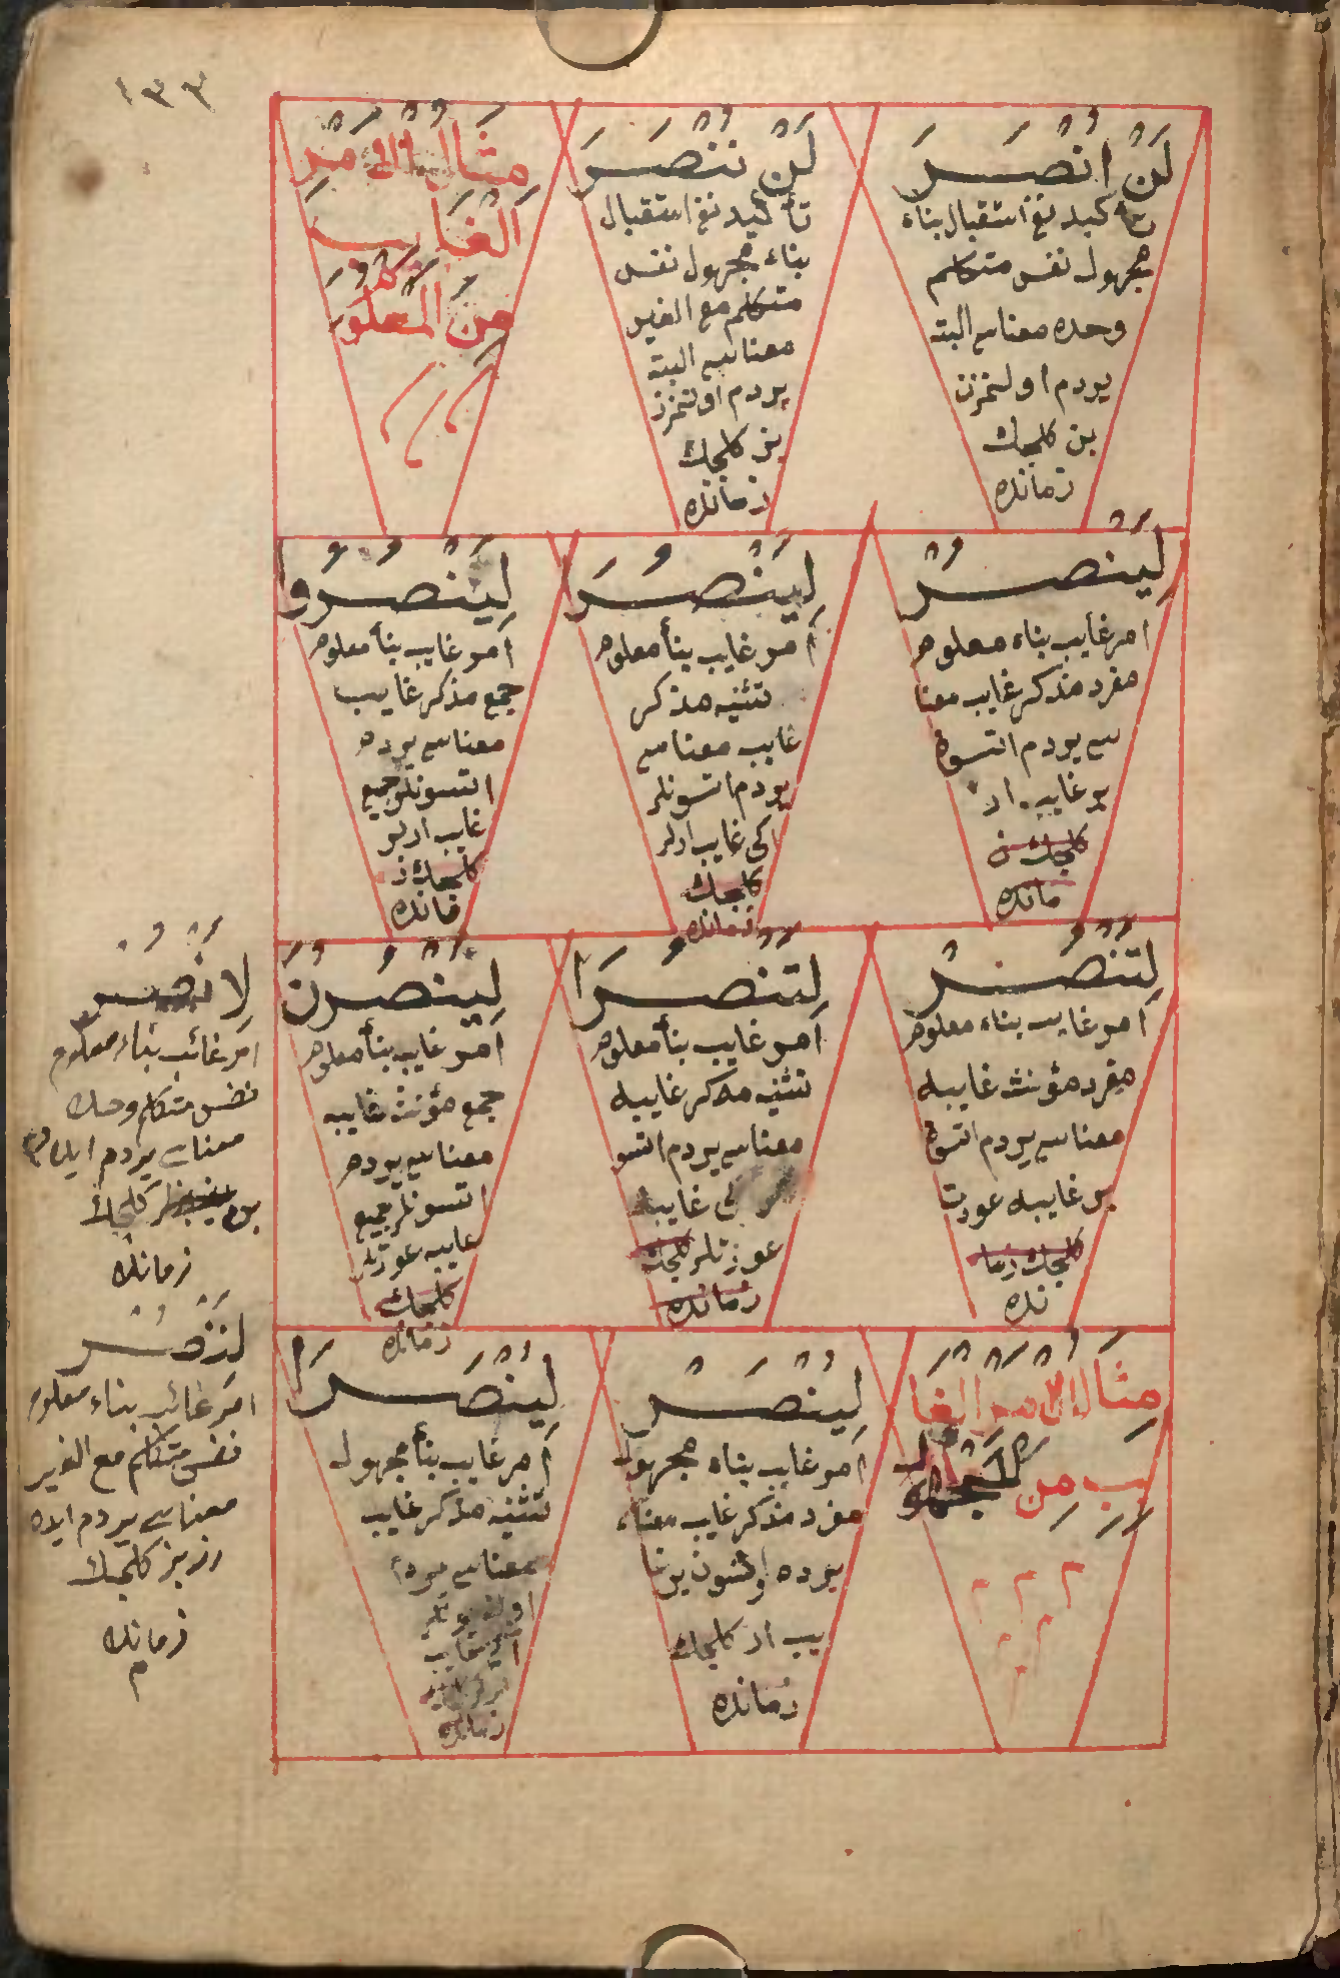 ١٣٣
لَنْ اُنْصَرَ
تأكيد نفى استقبال بناء
مجهول نفس متكلم
وحده معناسى البته
يردم اولنمزن
بن كلجك
زمانده
لَنْ نُنْصَرَ
تأكيد نفى استقبال
بناء مجهول نفس
متكلم مع الغير
معناسى البته
يردم اولنمزز
بز كلجك
زمانده
مِثَالُ الْاَمْرِ
الْغَايِبِ
مِنَ الْمَعْلُومِ
لِيَنْصُرْ
امر غايب بناء معلوم
مفرد مذكر غايب معنا
سى يردم اتسون
بر غايب ار
كلجك ز
مانده
لِيَنْصُرَا
امر غايب بنأ معلوم
تثنيه مذكر
غايب معناسى
يردم اتسونلر
اكى غايب ارلر
كلجك
زمانده
لِيَنْصُرُوا
امر غايب بنأ معلوم
جمع مذكر غايب
معناسى يردم
اتسونلر جميع
غايب ارلر
كلجك ز
مانده
لِتَنْصُرْ
امر غايب بناء معلوم
مفرد مؤنث غايبه
معناسى يردم اتسون
بر غايبه عورت
كلجك زما
نده
لِتَنْصُرَا
امر غايب بنأ معلوم
تثنيه مذكر غايبه
معناسى يردم اتسو
غايبه
عورتلر كلجك
زمانده
لِيَنْصُرْنَ
امر غايب بنأ معلوم
جمع مؤنث غايبه
معناسى يردم
اتسونلر جميع
غايبه عورتلر
كلجك
زمانده
مِثَالُ الْاَمْرِ الْغَا
يِبِ مِنَ الْمَجْهُولِ
لِيُنْصَرْ
امر غايب بناء مجهول
مفرد مذكر غايب معناء
يرده اولنسون بر غا
يب ار كلجك
زمانده
لِيُنْصَرَا
امر غايب بنأ مجهول
تثنيه مذكر غايب
معناسى
غايب
زمانده
لِاَنْصُرْ
امر غائب بناء معلوم
نفس متكلم وحده
معناسى يردم ايده
بن كلجك
زمانده
لِنَنْصُرْ
امر غائب بناء معلوم
نفس متكلم مع الغير
معناسى يردم ايده
رز بز كلجك
زمانده
م